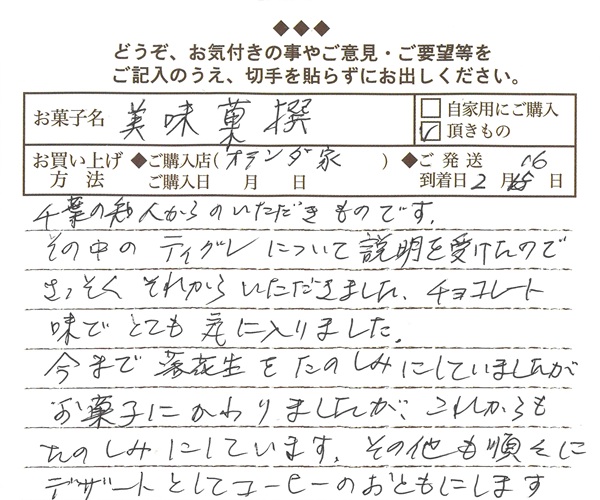 ◆◆◆
どうぞ、お気付きの事やご意見・ご要望等を
ご記入のうえ、切手を貼らずにお出しください。
お菓子名 美味菓撰 □自家用にご購入
☑頂きもの
お買い上げ方法 ◆ご購入店(オランダ家) ◆ご発送
ご購入日 月 日 到着日 2月 16日
千葉の知人からのいただきものです。
その中のティグレについて説明を受けたので
さっそくそれからいただきました、チョコレート
味でとても気に入りました。
今まで落花生をたのしみにしていましたが
お菓子にかわりましたが、これからも
たのしみにしています。その他も順々に
デザートとしてコーヒーのおともにします